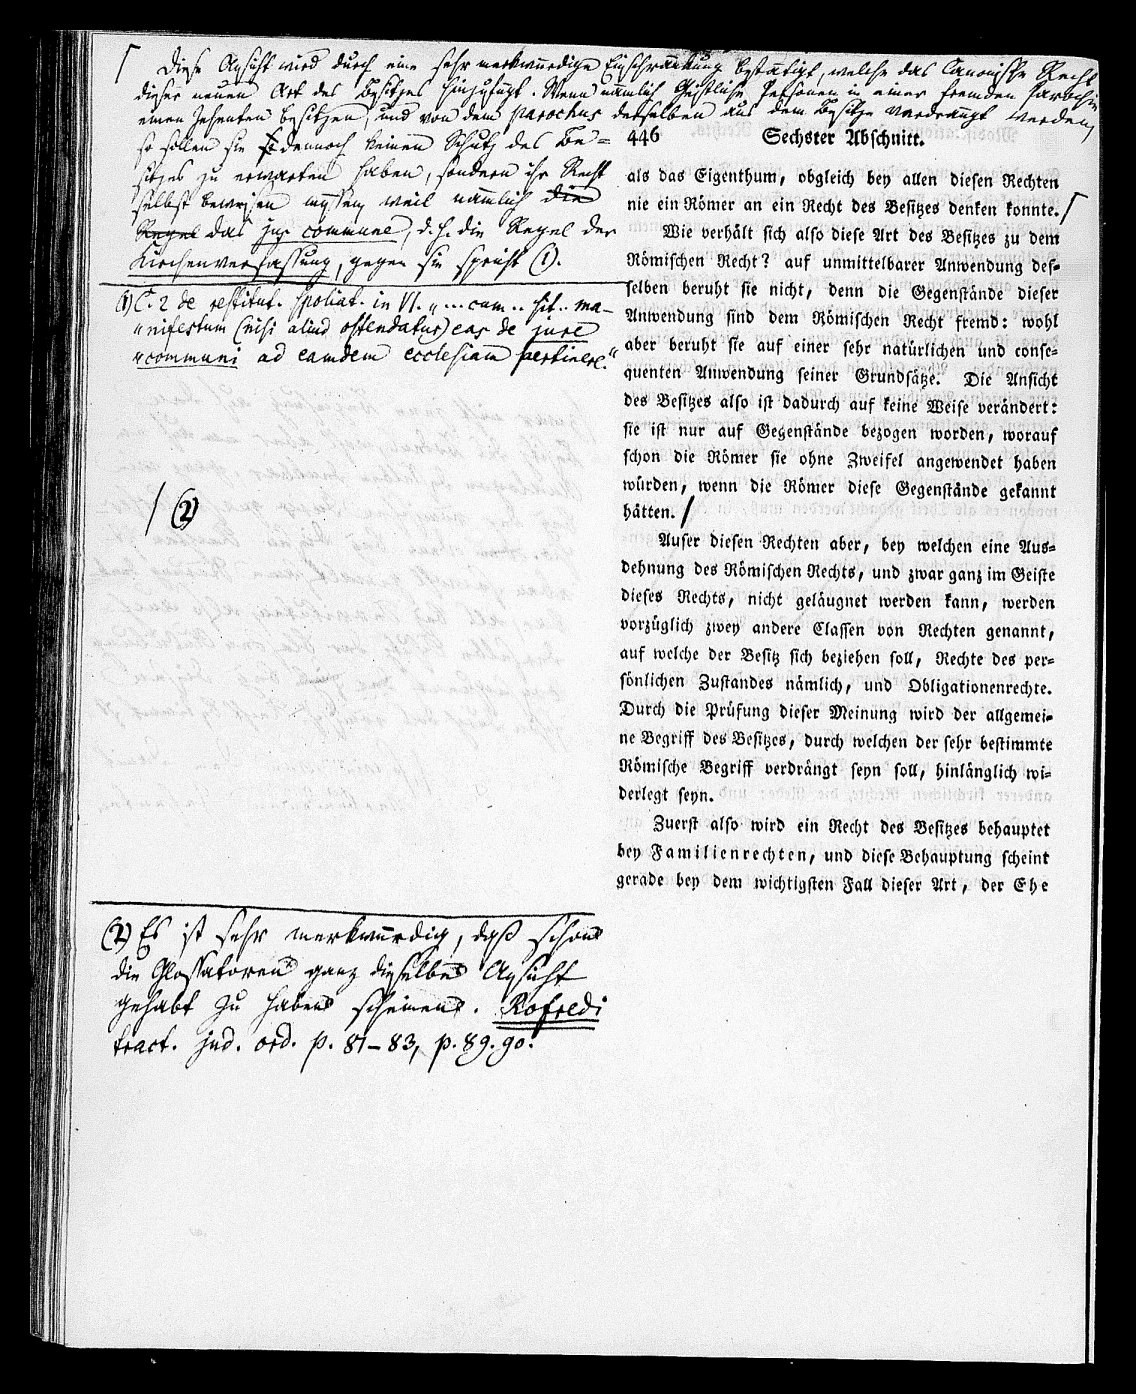 Diese Ansicht wird durch eine sehr merkwürdige Einschränkung bestätigt, welche das Canonische Recht
dieser neuen Art des Besitzes hinzufügt. Wenn nämlich Geistliche Personen in einer fremden Parochie
einen Zehenten besitzen, und von dem parochus desselben aus dem Besitze verdrängt werden,
so sollen sie dennoch keinen Schutz des Be-
sitzes zu erwarten haben, sondern ihr Recht
selbst beweisen müssen, weil nämlich die
Regel das jus commune, d. h. die Regel der
Kirchenverfassung, gegen sie spricht (1).
(1) C. 2 de restitut. spoliat. in VI. „... cum .. sit .. ma-
„nifestum (nisi aliud ostendatur) eas de jure
„communi ad eamdem ecclesiam pertinere."
(2)
446 Sechster Abschnitt.
als das Eigenthum, obgleich bey allen diesen Rechten
nie ein Römer an ein Recht des Besitzes denken konnte.
Wie verhält sich also diese Art des Besitzes zu dem
Römischen Recht? auf unmittelbarer Anwendung des-
selben beruht sie nicht, denn die Gegenstände dieser
Anwendung sind dem Römischen Recht fremd: wohl
aber beruht sie auf einer sehr natürlichen und conse-
quenten Anwendung seiner Grundsätze. Die Ansicht
des Besitzes also ist dadurch auf keine Weise verändert:
sie ist nur auf Gegenstände bezogen worden, worauf
schon die Römer sie ohne Zweifel angewendet haben
würden, wenn die Römer diese Gegenstände gekannt
hätten.
Auser diesen Rechten aber, bey welchen eine Aus-
dehnung des Römischen Rechts, und zwar ganz im Geiste
dieses Rechts, nicht geläugnet werden kann, werden
vorzüglich zwey andere Classen von Rechten genannt,
auf welche der Besitz sich beziehen soll, Rechte des per-
sönlichen Zustandes nämlich, und Obligationenrechte.
Durch die Prüfung dieser Meinung wird der allgemei-
ne Begriff des Besitzes, durch welchen der sehr bestimmte
Römische Begriff verdrängt seyn soll, hinlänglich wi-
derlegt seyn.
Zuerst also wird ein Recht des Besitzes behauptet
bey Familienrechten, und diese Behauptung scheint
gerade bey dem wichtigsten Fall dieser Art, der Ehe
(2) Es ist sehr merkwürdig, daß schon
die Glossatoren ganz dieselbe Ansicht
gehabt zu haben scheinen. Rofredi
tract. jud. ord. p. 81-83, p. 89. 90.